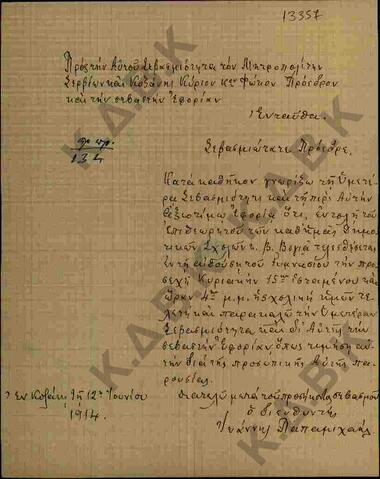 13357
Πρὸς τὴν Αὐτοῦ Σεβασμιότητα τὸν Μητροπολίτην
Σερβίων καὶ Κοζάνης Κύριον Κον Φώτιον Πρόεδρον
καὶ τὴν σεβαστὴν Ἐφορίαν
Ἐνταῦθα.
134
Σεβασμιώτατε Πρόεδρε,
Κατὰ καθῆκον γνωρίζω τῇ Ὑμετέ
ρᾳ Σεβασμιότητι καὶ τῇ περὶ Αὐτὴν
ἀξιοτίμῳ Ἐφορίᾳ ὅτι, ἐντολῇ τοῦ
Ἐπιθεωρητοῦ τῶν καθ' ἡμᾶς Δημο
τικῶν Σχολῶν κ. Β. Βογιᾶ τελεσθήσεται
ἐν τῇ αἰθούσῃ τοῦ Γυμνασίου τὴν προ
σεχῆ Κυριακὴν 15ην ἱσταμένου καὶ
ὥραν 4ην μ.μ. ἡ σχολικὴ ἡμῶν τε
λετὴ καὶ παρακαλῶ τὴν Ὑμετέραν
Σεβασμιότητα καὶ δι' Αὐτῆς τὴν
σεβαστὴν Ἐφορίαν, ὅπως τιμήσῃ αὐ
τὴν διὰ τῆς προσωπικῆς Αὐτῆς πα
ρουσίας.
Ἐν Κοζάνῃ τῇ 12ῃ Ἰουνίου
1914.
Διατελῶ μετὰ τοῦ προσήκοντος σεβασμοῦ
ὁ διευθυντὴς
Ἰωάννης Παπαμιχαὴλ
Κ.Δ.Β.Κ